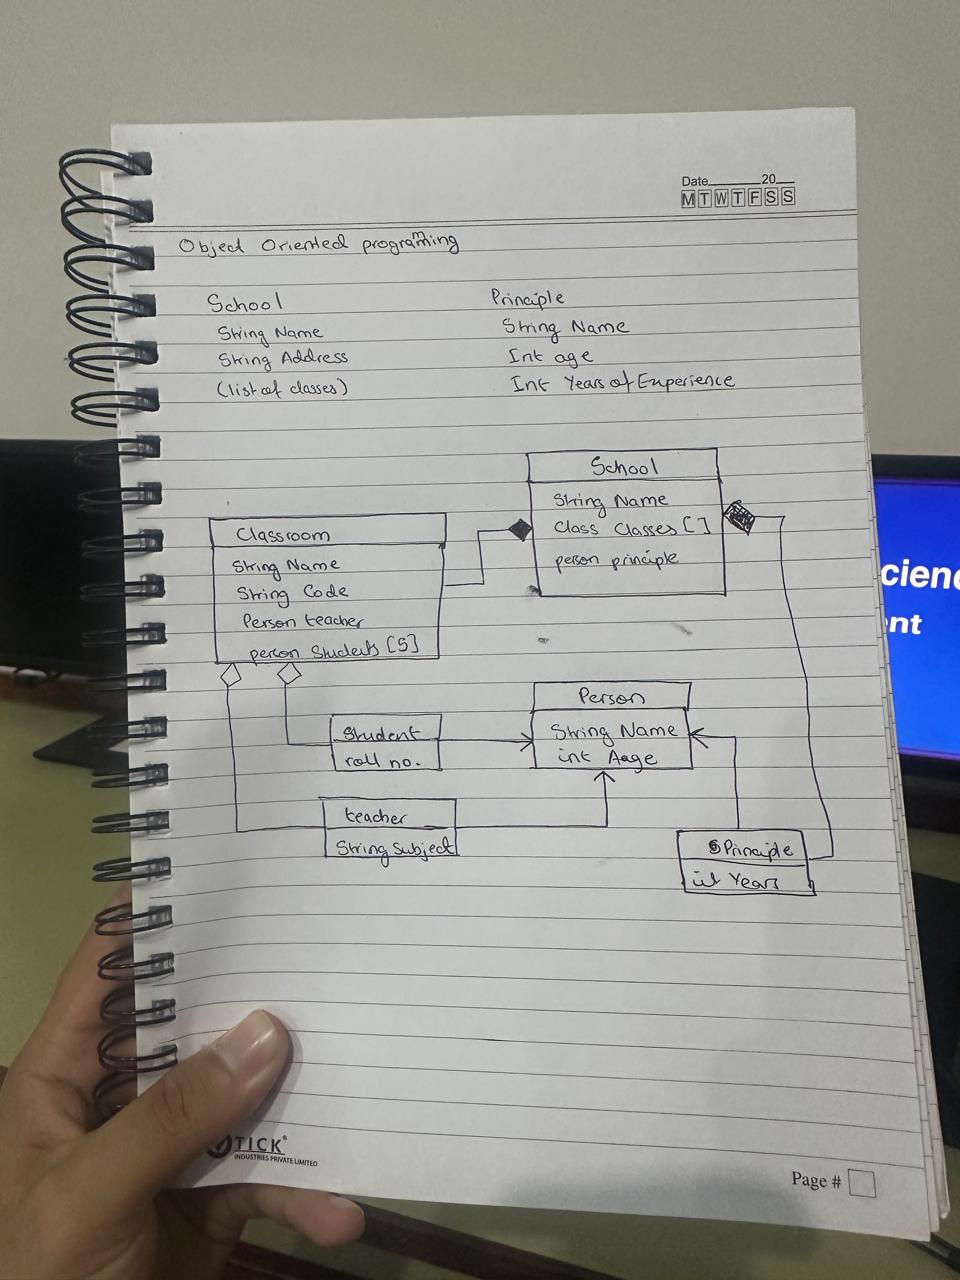 Date 20
M T W T F S S
Object Oriented programming
School
String Name
String Address
(list of classes)
Principle
String Name
Int age
Int Years of Experience
School
String Name
Class Classes [ ]
person principle
Classroom
String Name
String Code
Person teacher
person Students [5]
Person
String Name
int Aage
Student
roll no.
teacher
String subject
Principle
int Years
cienc
ent
TICK®
INDUSTRIES PRIVATE LIMITED
Page #